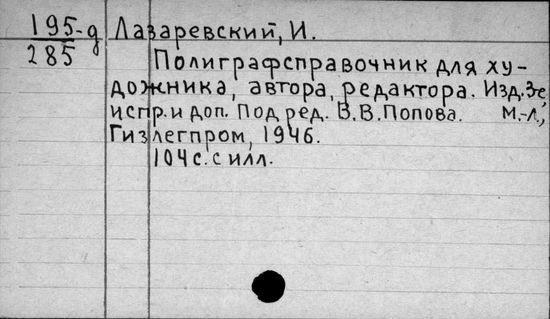 195-д Лазаревский, И.
285
Полиграфсправочник для ху-
дожника, автора, редактора. Изд. 3е,
испр. и доп. Под ред. В.В.Попова. М.-Л.,
Гизлегпром, 1946.
104с. с илл.